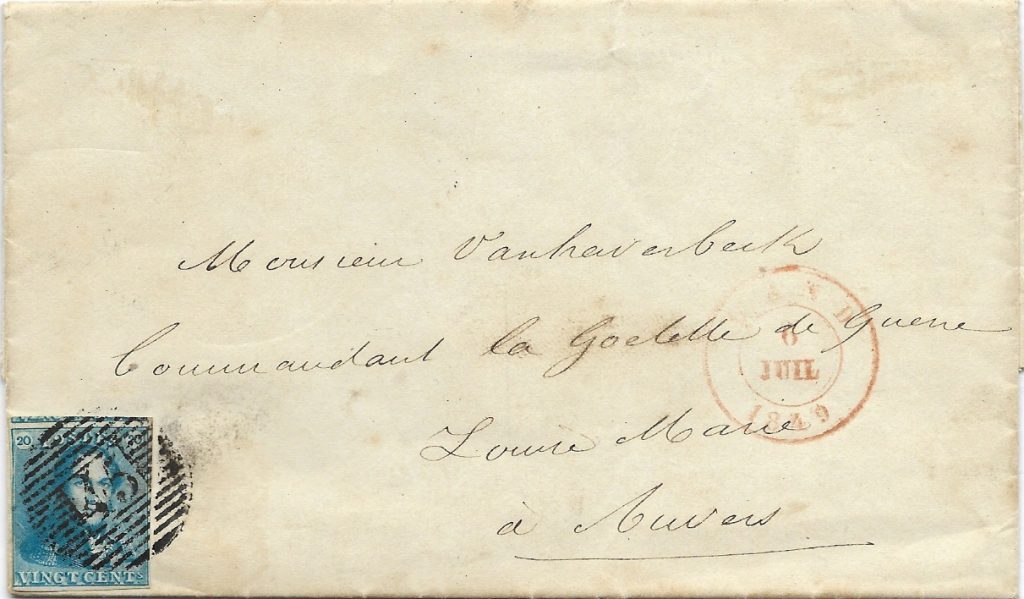 Monsieur Vanhaverbeck
Commandant la Goelette de Guerre
Louise Marie
à Anvers
GAND
6
JUIL
1849
20 POSTES 20
45
VINGT CENTS